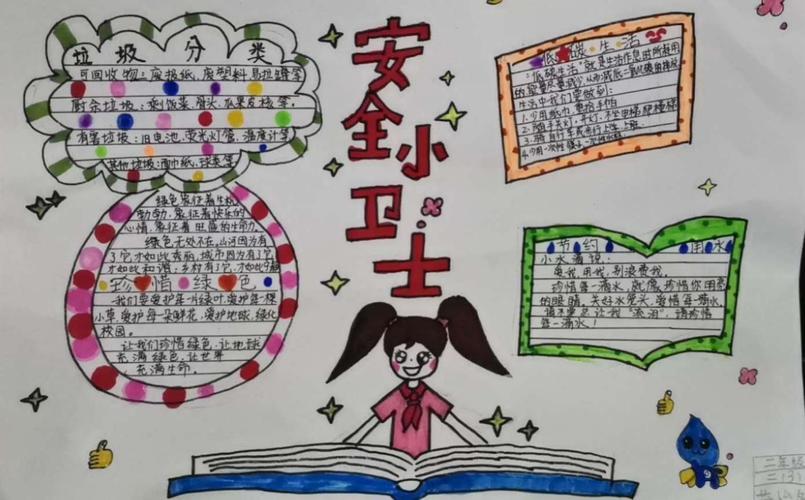 垃圾分类
可回收物：废报纸，废塑料，易拉罐等
厨余垃圾：剩饭菜，骨头，瓜果皮核等，
有害垃圾：旧电池，荧光灯管，温度计等
其他垃圾：面巾纸，球类等
绿色象征着生机
勃勃，象征着快乐的
心情，象征着旺盛的生命力
绿色无处不在，山河因为有
了它才如此秀丽，城市因为有了它
才如此和谐，乡村有了它，才如此宁静
珍惜绿色
我们要爱护每一片绿叶，爱护每一棵
小草，爱护每一朵鲜花，爱护地球，绿化
校园。
让我们珍惜绿色，让地球
充满绿色，让世界
充满生命。
安全小卫士
低碳生活
"低碳生活"就是生活作息时所耗用
的能量尽量减少，从而减低二氧化碳的排放
生活中我们要做到：
节约用水
小水滴说：
爱我，用我，别浪费我。
珍惜每一滴水，就像珍惜你明亮
的眼睛，关好水龙头，爱惜每一滴水，
请不要总让我"流泪"，请珍惜
每一滴水！
二年级